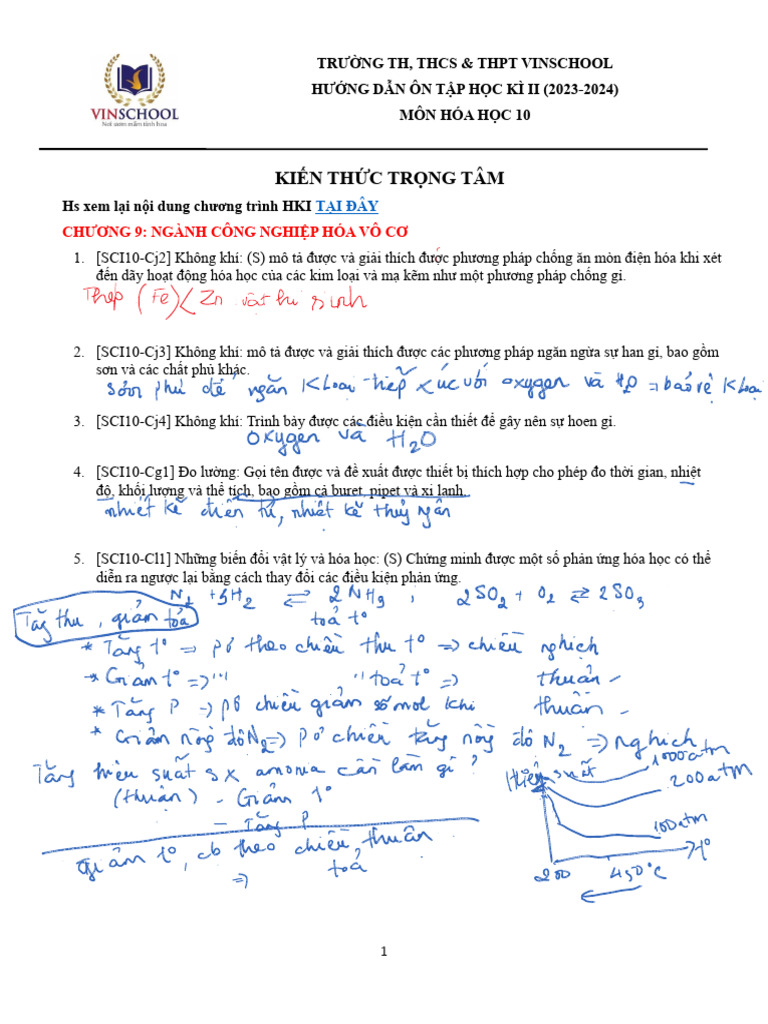 VINSCHOOL
Nơi ươm mầm tinh hoa
TRƯỜNG TH, THCS & THPT VINSCHOOL
HƯỚNG DẪN ÔN TẬP HỌC KÌ II (2023-2024)
MÔN HÓA HỌC 10
KIẾN THỨC TRỌNG TÂM
Hs xem lại nội dung chương trình HKI TẠI ĐÂY
CHƯƠNG 9: NGÀNH CÔNG NGHIỆP HÓA VÔ CƠ
1. [SCI10-Cj2] Không khí: (S) mô tả được và giải thích được phương pháp chống ăn mòn điện hóa khi xét
đến dãy hoạt động hóa học của các kim loại và mạ kẽm như một phương pháp chống gỉ.
Thép (Fe) < Zn vật hi sinh
2. [SCI10-Cj3] Không khí: mô tả được và giải thích được các phương pháp ngăn ngừa sự han gỉ, bao gồm
sơn và các chất phủ khác.
Sơn phủ để ngăn kloại tiếp xúc với oxygen và H2O = bảo vệ kloại
3. [SCI10-Cj4] Không khí: Trình bày được các điều kiện cần thiết để gây nên sự hoen gỉ.
oxygen và H2O
4. [SCI10-Cg1] Đo lường: Gọi tên được và đề xuất được thiết bị thích hợp cho phép đo thời gian, nhiệt
độ, khối lượng và thể tích, bao gồm cả buret, pipet và xi lanh.
nhiệt kế điện tử, nhiệt kế thủy ngân
5. [SCI10-Cl1] Những biến đổi vật lý và hóa học: (S) Chứng minh được một số phản ứng hóa học có thể
diễn ra ngược lại bằng cách thay đổi các điều kiện phản ứng.
N2 + 3H2 ⇌ 2NH3 , 2SO2 + O2 ⇌ 2SO3
Tăng thu, giảm toả
toả t°
* Tăng t° => pứ theo chiều thu t° => chiều nghịch
* Giảm t° => "" "toả t° => thuận -
* Tăng P -> pứ chiều giảm số mol khí thuận -
* Giảm nồng độ N2 => pứ chiều tăng nồng độ N2 => nghịch
Tăng hiệu suất sx amonia cần làm gì?
(thuận) - Giảm t°
- Tăng P
giảm t°, cb theo chiều thuận
=> toả
Hiệu suất
1000atm
200atm
100atm
t°
200 450°C
1